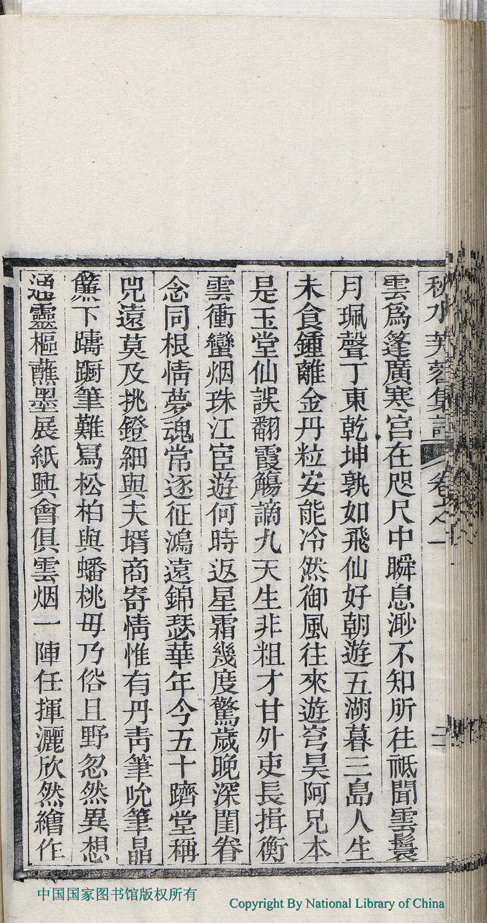 秋水芙蓉集詩 卷之一
雲爲蓬廣寒宮在咫尺中瞬息渺不知所往祇聞雲鬟
月珮聲丁東乾坤孰如飛仙好朝遊五湖暮三島人生
未食鍾離金丹粒安能冷然御風往來遊穹昊阿兄本
是玉堂仙誤翻霞觴謫九天生非粗才甘外吏長揖衡
雲衝蠻烟珠江宦遊何時返星霜幾度驚歲晚深閨眷
念同根情夢魂常逐征鴻遠錦瑟華年今五十躋堂稱
兕遠莫及挑鐙細與夫壻商寄情惟有丹靑筆吮筆晶
簾下躊躇筆難寫松柏與蟠桃毋乃俗且野忽然異想
通靈樞蘸墨展紙興會俱雲烟一陣任揮灑欣然繪作
中国国家图书馆版权所有
Copyright By National Library of China